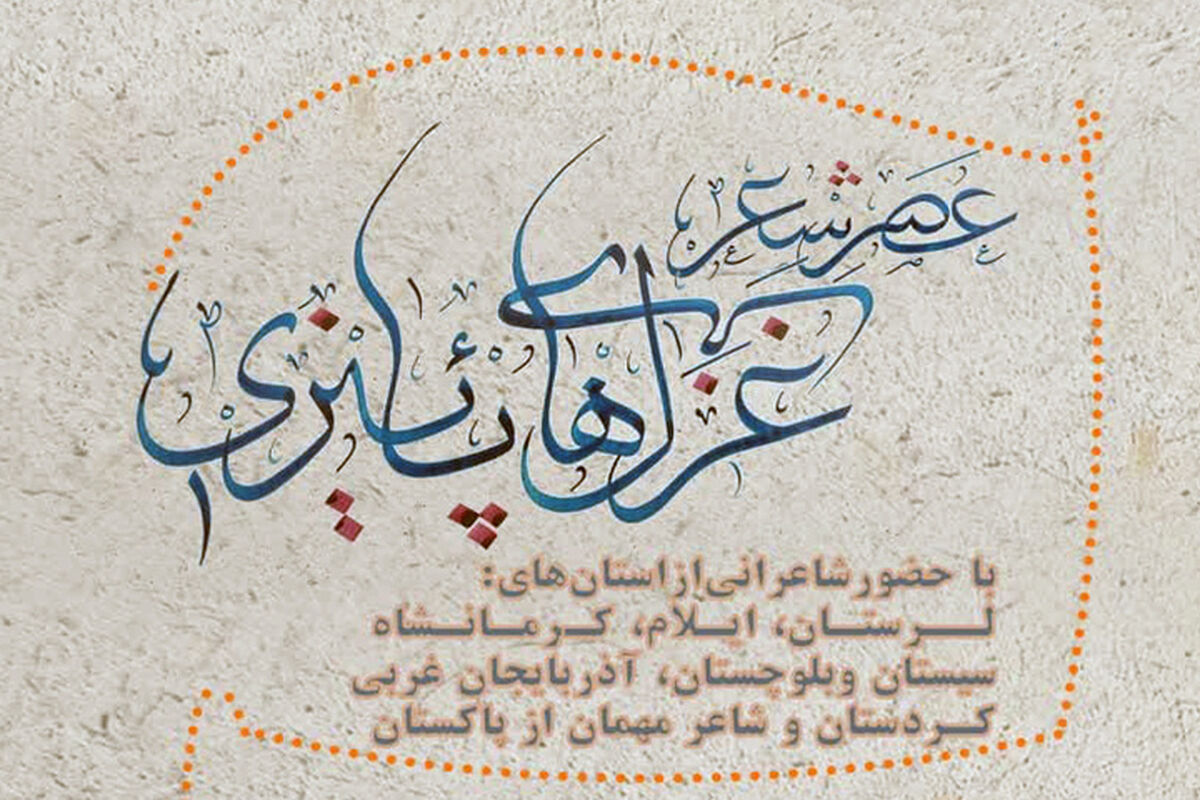 عصر شعر
غزل‌های پائیزی
با حضور شاعرانی از استان‌های:
لرستان، ایلام، کرمانشاه
سیستان وبلوچستان، آذربایجان غربی
کردستان و شاعر مهمان از پاکستان